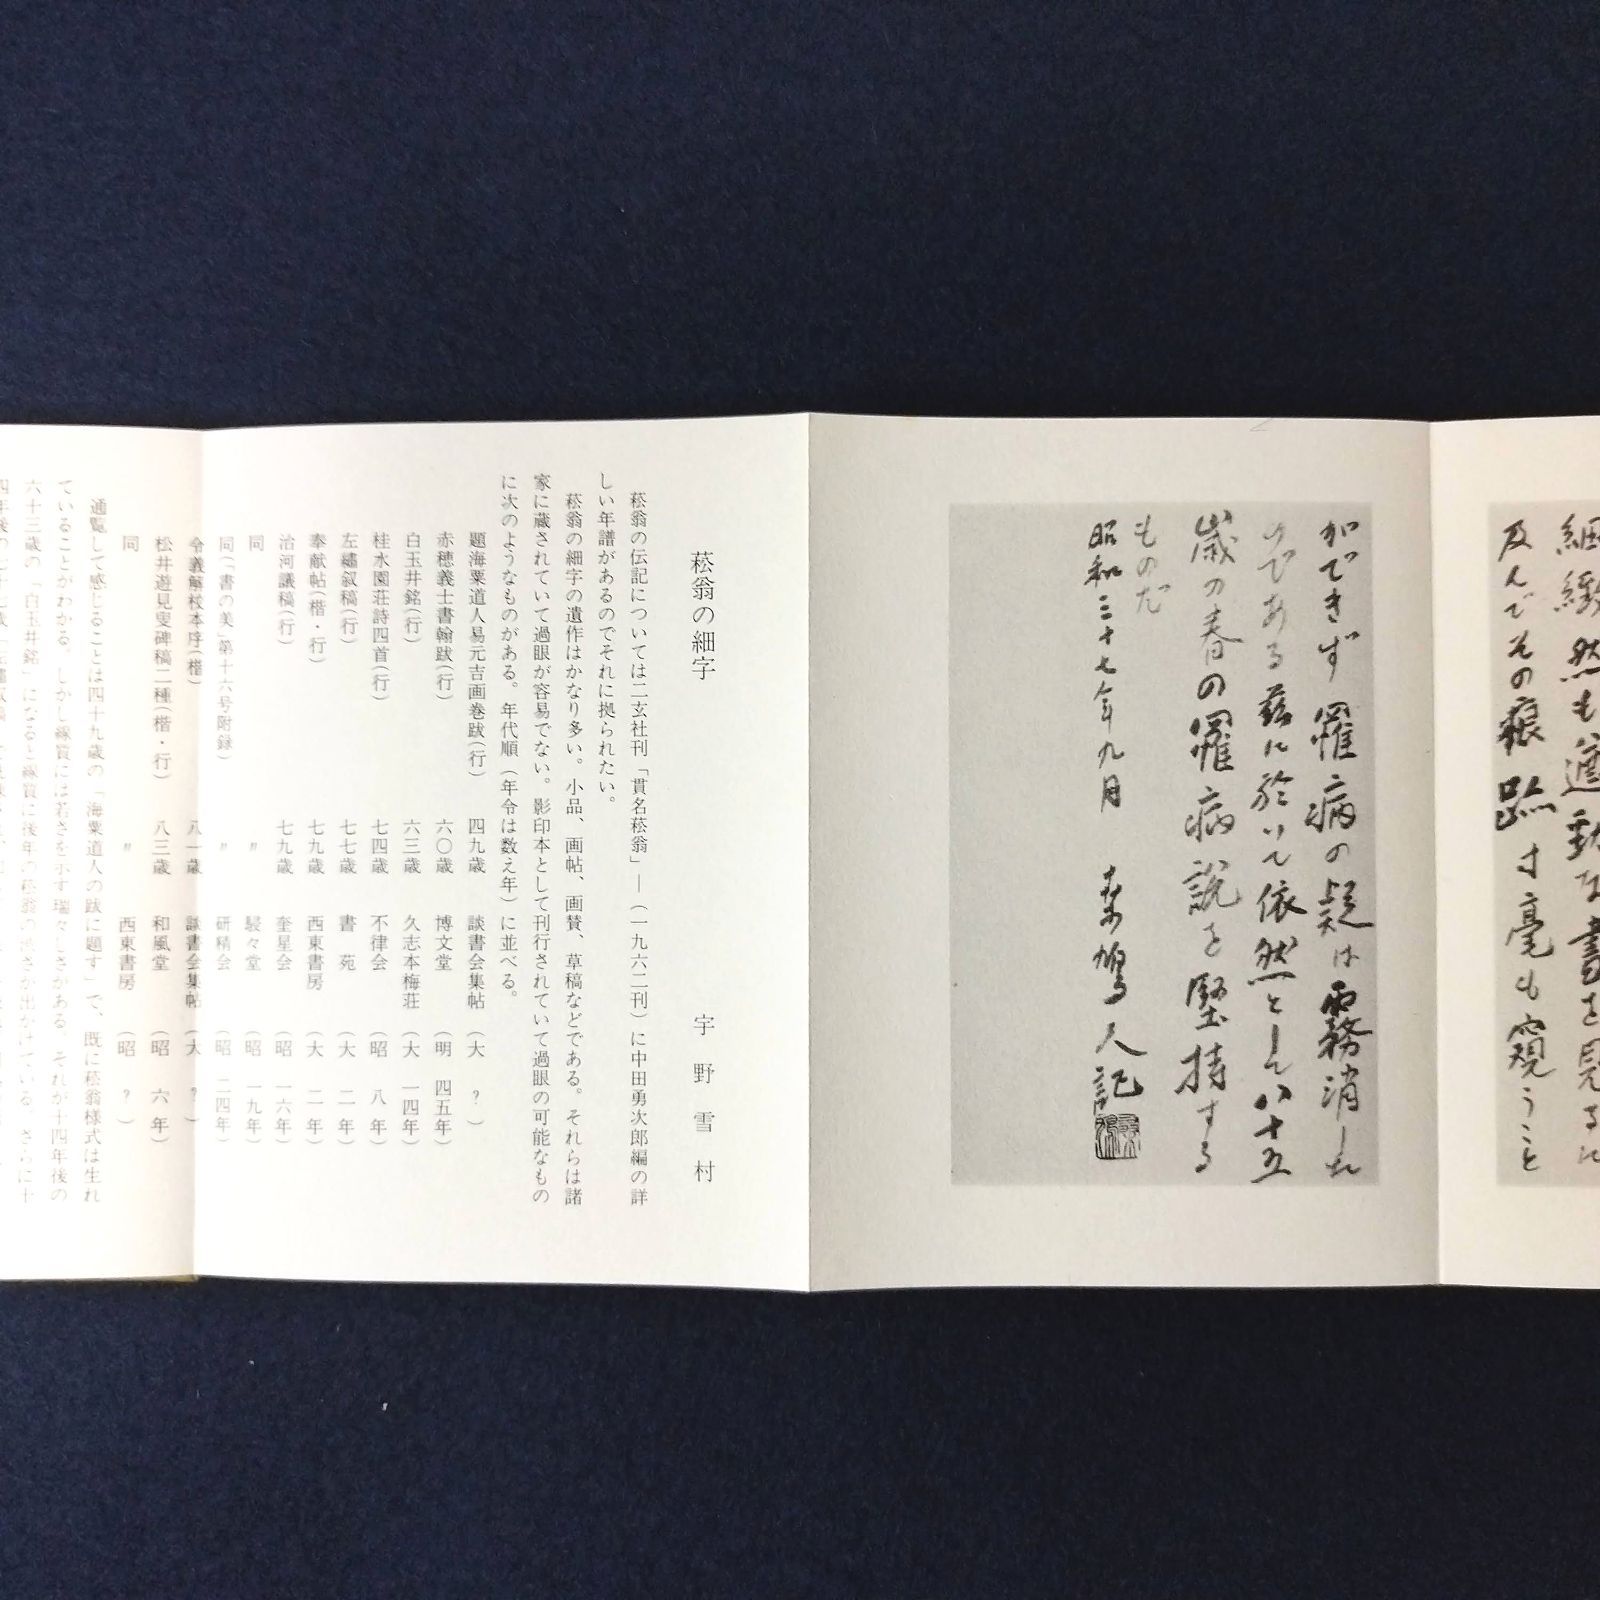 細緻然も遒勁な書を見るに
及んでその痕跡寸毫も窺うこと
ができず罹病の疑は霧消した
のである茲に於いて依然として八十五
歳の春の罹病説を堅持する
ものだ
昭和三十七年九月 桑鳩人記
菘翁の細字
宇野雪村
菘翁の伝記については二玄社刊「貫名菘翁」―(一九六二刊)に中田勇次郎編の詳
しい年譜があるのでそれに拠られたい。
菘翁の細字の遺作はかなり多い。小品、画帖、画賛、草稿などである。それらは諸
家に蔵されていて過眼が容易でない。影印本として刊行されていて過眼の可能なもの
に次のようなものがある。年代順(年令は数え年)に並べる。
題海粟道人易元吉画巻跋(行) 四九歳 談書会集帖 (大 ?)
赤穂義士書翰跋(行) 六〇歳 博文堂 (明 四五年)
白玉井銘(行) 六三歳 久志本梅荘 (大 一四年)
桂水園荘詩四首(行) 七四歳 不律会 (昭 八年)
左繡叙稿(行) 七七歳 書苑 (大 二年)
奉献帖(楷・行) 七九歳 西東書房 (大 二年)
治河議稿(行) 七九歳 奎星会 (昭 一六年)
同 〃 駸々堂 (昭 一九年)
同(「書の美」第十六号附録) 〃 研精会 (昭 二四年)
令義解校本序(楷) 八一歳 談書会集帖 (大 ?)
松井遊見叟碑稿二種(楷・行) 八三歳 和風堂 (昭 六年)
同 〃 西東書房 (昭 ?)
通覧して感じることは四十九歳の「海粟道人の跋に題す」で、既に菘翁様式は生れ
ていることがわかる。しかし線質には若さを示す瑞々しさがある。それが十四年後の
六十三歳の「白玉井銘」になると線質に後年の菘翁の渋さが出かけている。さらに十